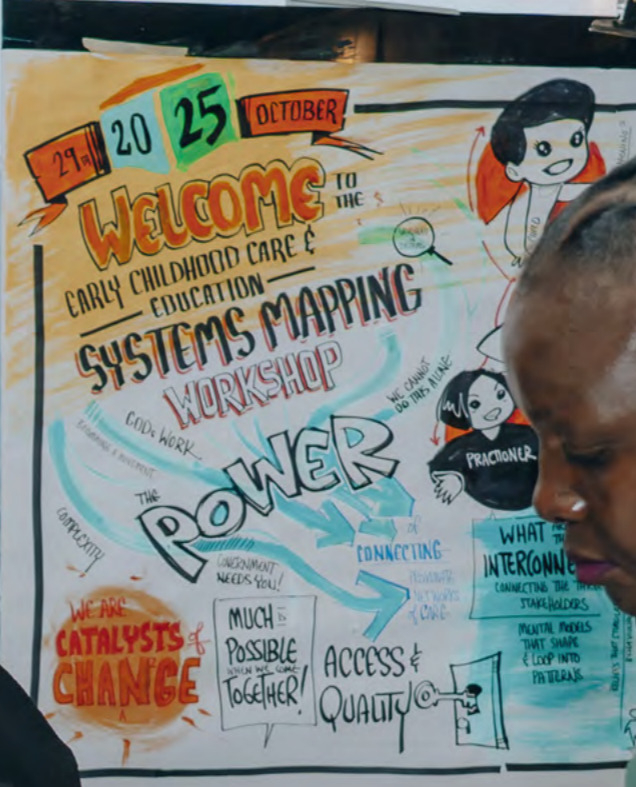 29TH 20 25 OCTOBER
WELCOME TO
THE
EARLY CHILDHOOD CARE &
EDUCATION
SYSTEMS MAPPING
WORKSHOP
WE CANNOT
DO THIS ALONE
GODS WORK
THE
POWER
of
CONNECTING
NETWORKS
of CARE
COMPLEXITY
GOVERNMENT
NEEDS YOU!
PRACTIONER
WE ARE
CATALYSTS of
CHANGE
MUCH IS
POSSIBLE
WHEN WE COME
TOGETHER!
ACCESS &
QUALITY
WHAT
INTERCONNE
CONNECTING THE
STAKEHOLDERS
MENTAL MODELS
THAT SHAPE
& LOOP INTO
PATTERNS